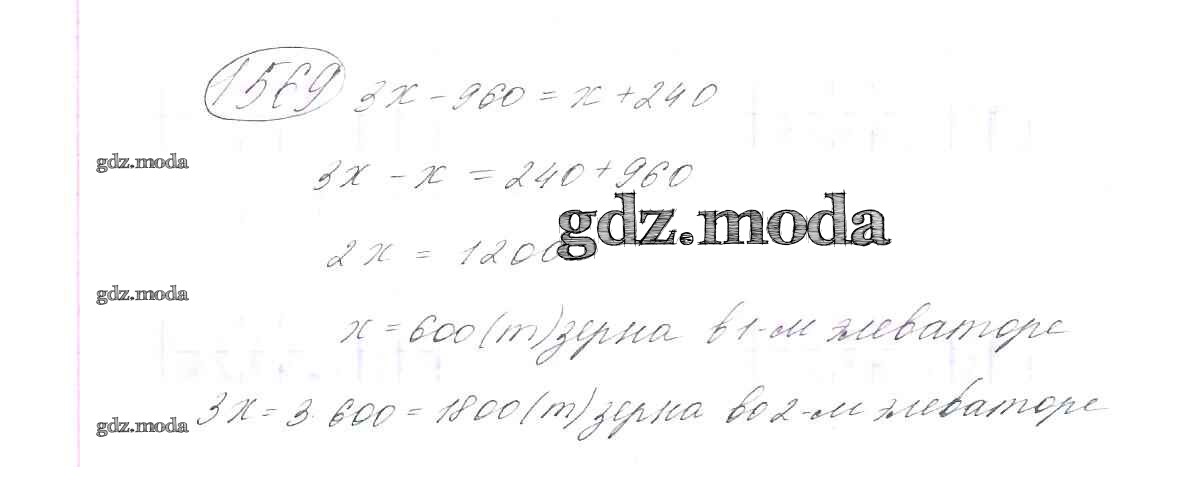 1569 3x - 960 = x + 240
gdz.moda
3x - x = 240 + 960
gdz.moda
2x = 1200
gdz.moda
x = 600 (т) зерна в 1-м элеваторе
3x = 3 · 600 = 1800 (т) зерна во 2-м элеваторе
gdz.moda